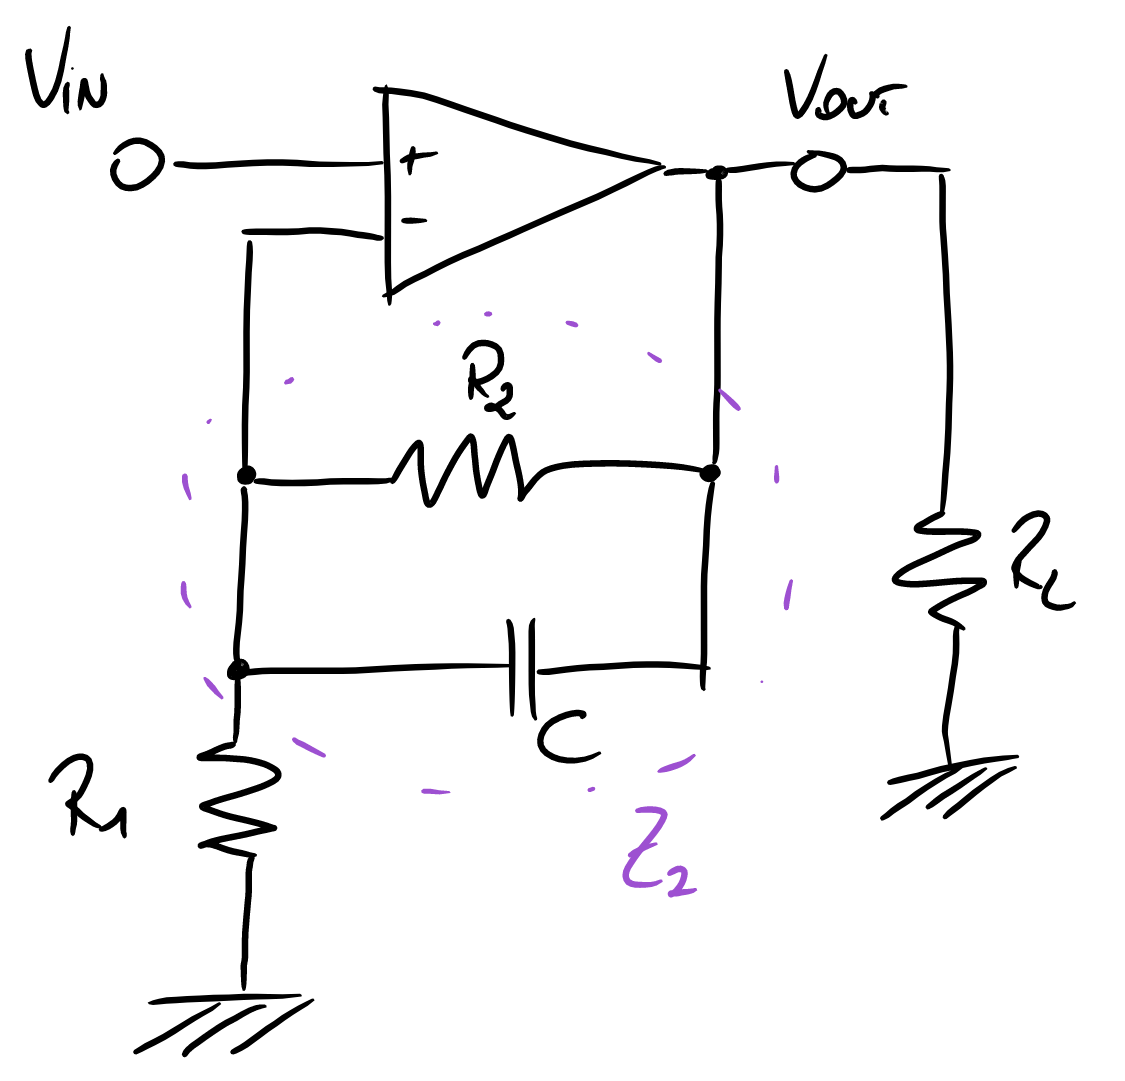 VIN
VOUT
+
-
R2
RL
C
R1
Z2